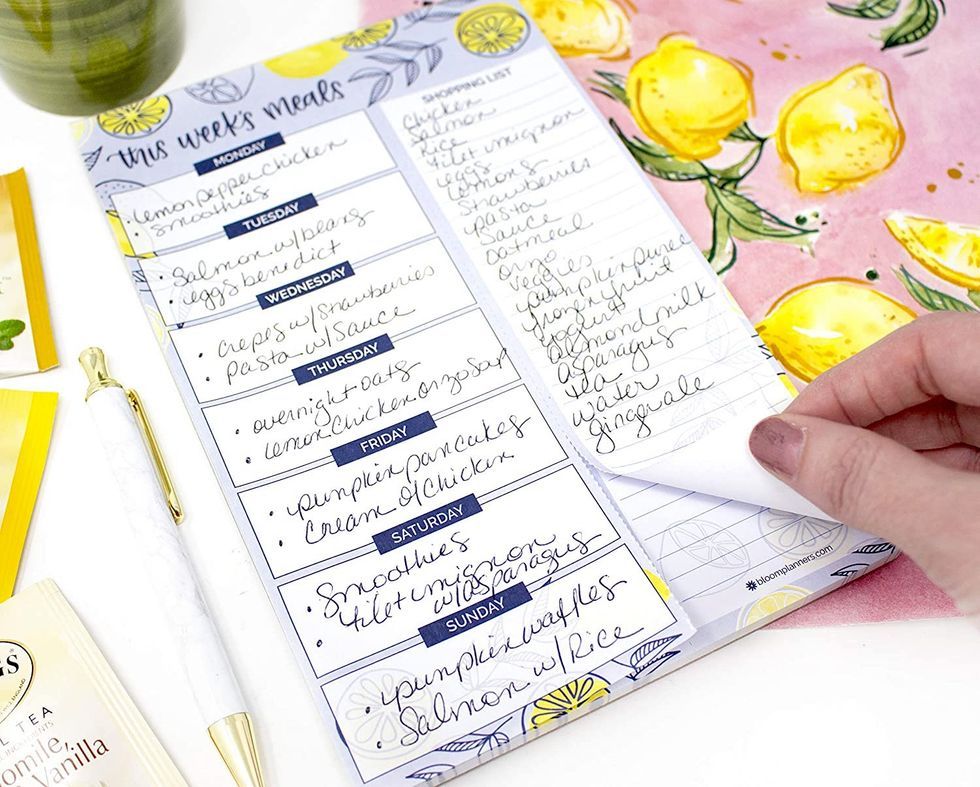 this week's meals
MONDAY
• lemon pepper chicken
• smoothies
TUESDAY
• Salmon w/beans
• eggs benedict
WEDNESDAY
• crepes w/strawberries
• pasta w/sauce
THURSDAY
• overnight oats
• lemon chicken orzo soup
FRIDAY
• pumpkin pancakes
• cream of chicken
SATURDAY
• Smoothies
• filet mignon
w/asparagus
SUNDAY
• pumpkin waffles
• Salmon w/Rice
SHOPPING LIST
Chicken
Salmon
Rice
filet mignon
eggs
lemons
Strawberries
pasta
Sauce
oatmeal
orzo
veggies
pumpkin puree
frozen fruit
yogurt
almond milk
asparagus
tea
water
gingerale
bloomplanners.com
GS
L TEA
omile,
Vanilla